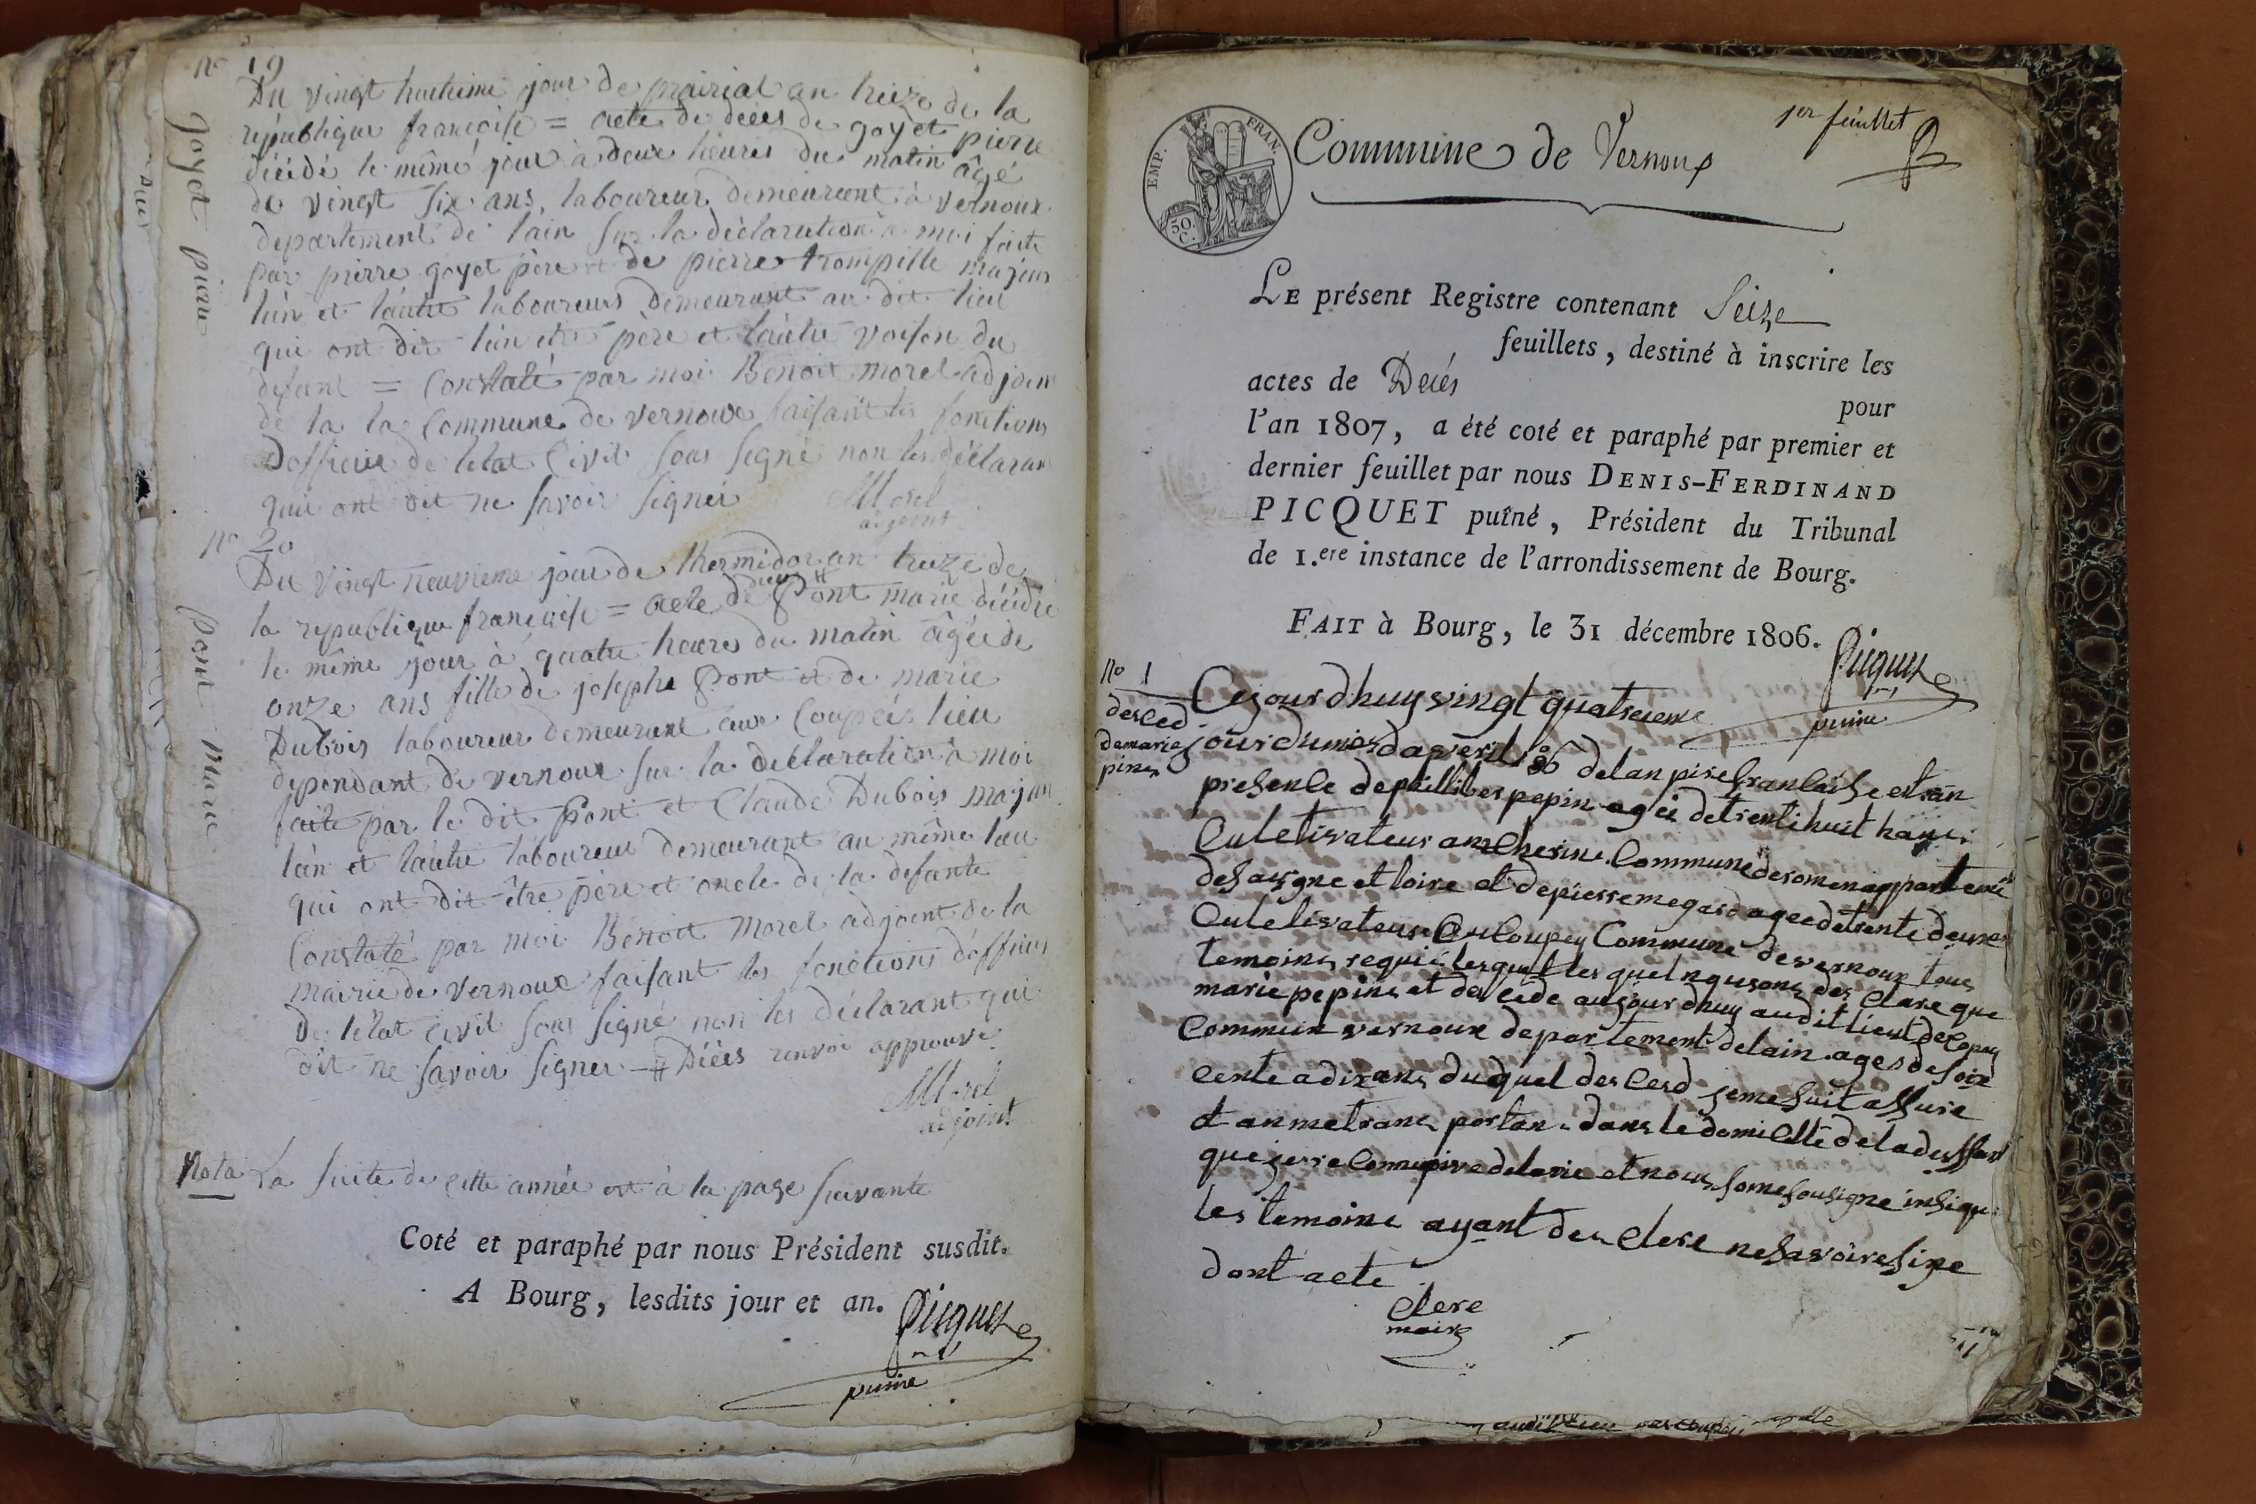 n° 19
Du vingt huitieme jour de prairial an treize de la
république françoise = acte de décès de goyet pierre
décédé le même jour à deux heures du matin âgé
de vingt six ans, laboureur demeurant à vernoux
departement de lain sur la déclaration à moi faite
par pierre goyet père et de pierre trompille majeurs
lún et láutre laboureurs demeurant au dit lieu
qui ont dit lún être père et láutre voisin du
defunt = Constaté par moi Benoit morel adjoint
de la la Commune de vernoux faisant les fonctions
Dofficier de létat Civil sous signé non les déclarans
qui ont dit ne savoir signer
Morel
adjoint
goyet pierre
n° 20
Du vingt neuvieme jour de thermidor an treize de
la republique françoise = acte de # Pont marie décédée
le même jour à quatre heures du matin âgée de
onze ans fille de josephe Pont et de marie
Dubois laboureur demeurant aux Coupées lieu
dependant de vernoux sur la déclaration à moi
faite par le dit Pont et Claude Dubois majeurs
lún et láutre laboureur demeurant au même lieu
qui ont dit être père et oncle de la defunte
Constaté par moi Benoit Morel adjoint de la
mairie de vernoux faisant les fonctions dofficier
De létat civil sous signé non les déclarant qui
dit ne savoir signer — # Décès renvoi approuvé
Morel
adjoint
pont marie
Nota La suite de cette année est à la page suivante
Coté et paraphé par nous Président susdit.
A Bourg, lesdits jour et an.
Picquet
puiné
1er feuillet
EMP. FRAN.
50 C.
Commune de Vernoux
LE présent Registre contenant Seize
feuillets, destiné à inscrire les
actes de Décés
pour
l'an 1807, a été coté et paraphé par premier et
dernier feuillet par nous DENIS-FERDINAND
PICQUET puîné, Président du Tribunal
de 1.ere instance de l'arrondissement de Bourg.
FAIT à Bourg, le 31 décembre 1806.
Picquet
puiné
no 1
desced
demarie
pepin
Cejourdhuy vingt quatrieme
jour dumois daveril delanpire francaise estan
presence depillibes pepin agée detrentihuit hans
Culetivateur a Commune deromenap partemen
desaogne et loire et depierre megard agee detrente deux ans
Culetivateur Commune devernoux tous
temoins requis lesquel les quel des Clare que
marie pepin et des cede aujourdhuy audit lieut
Commun vernoux departement delain ages desoix
cente adix ans duquel des Cesd jeme suit assure
et anmetrans portan dans le domicille dela
que delavie et nous some sousigné
les temoins ayant des Clere nesavoire sine
dont acte
Clere
maire